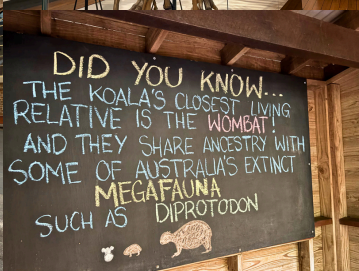 DID YOU KNOW...
THE KOALA'S CLOSEST LIVING
RELATIVE IS THE WOMBAT!
AND THEY SHARE ANCESTRY WITH
SOME OF AUSTRALIA'S EXTINCT
MEGAFAUNA
SUCH AS DIPROTODON